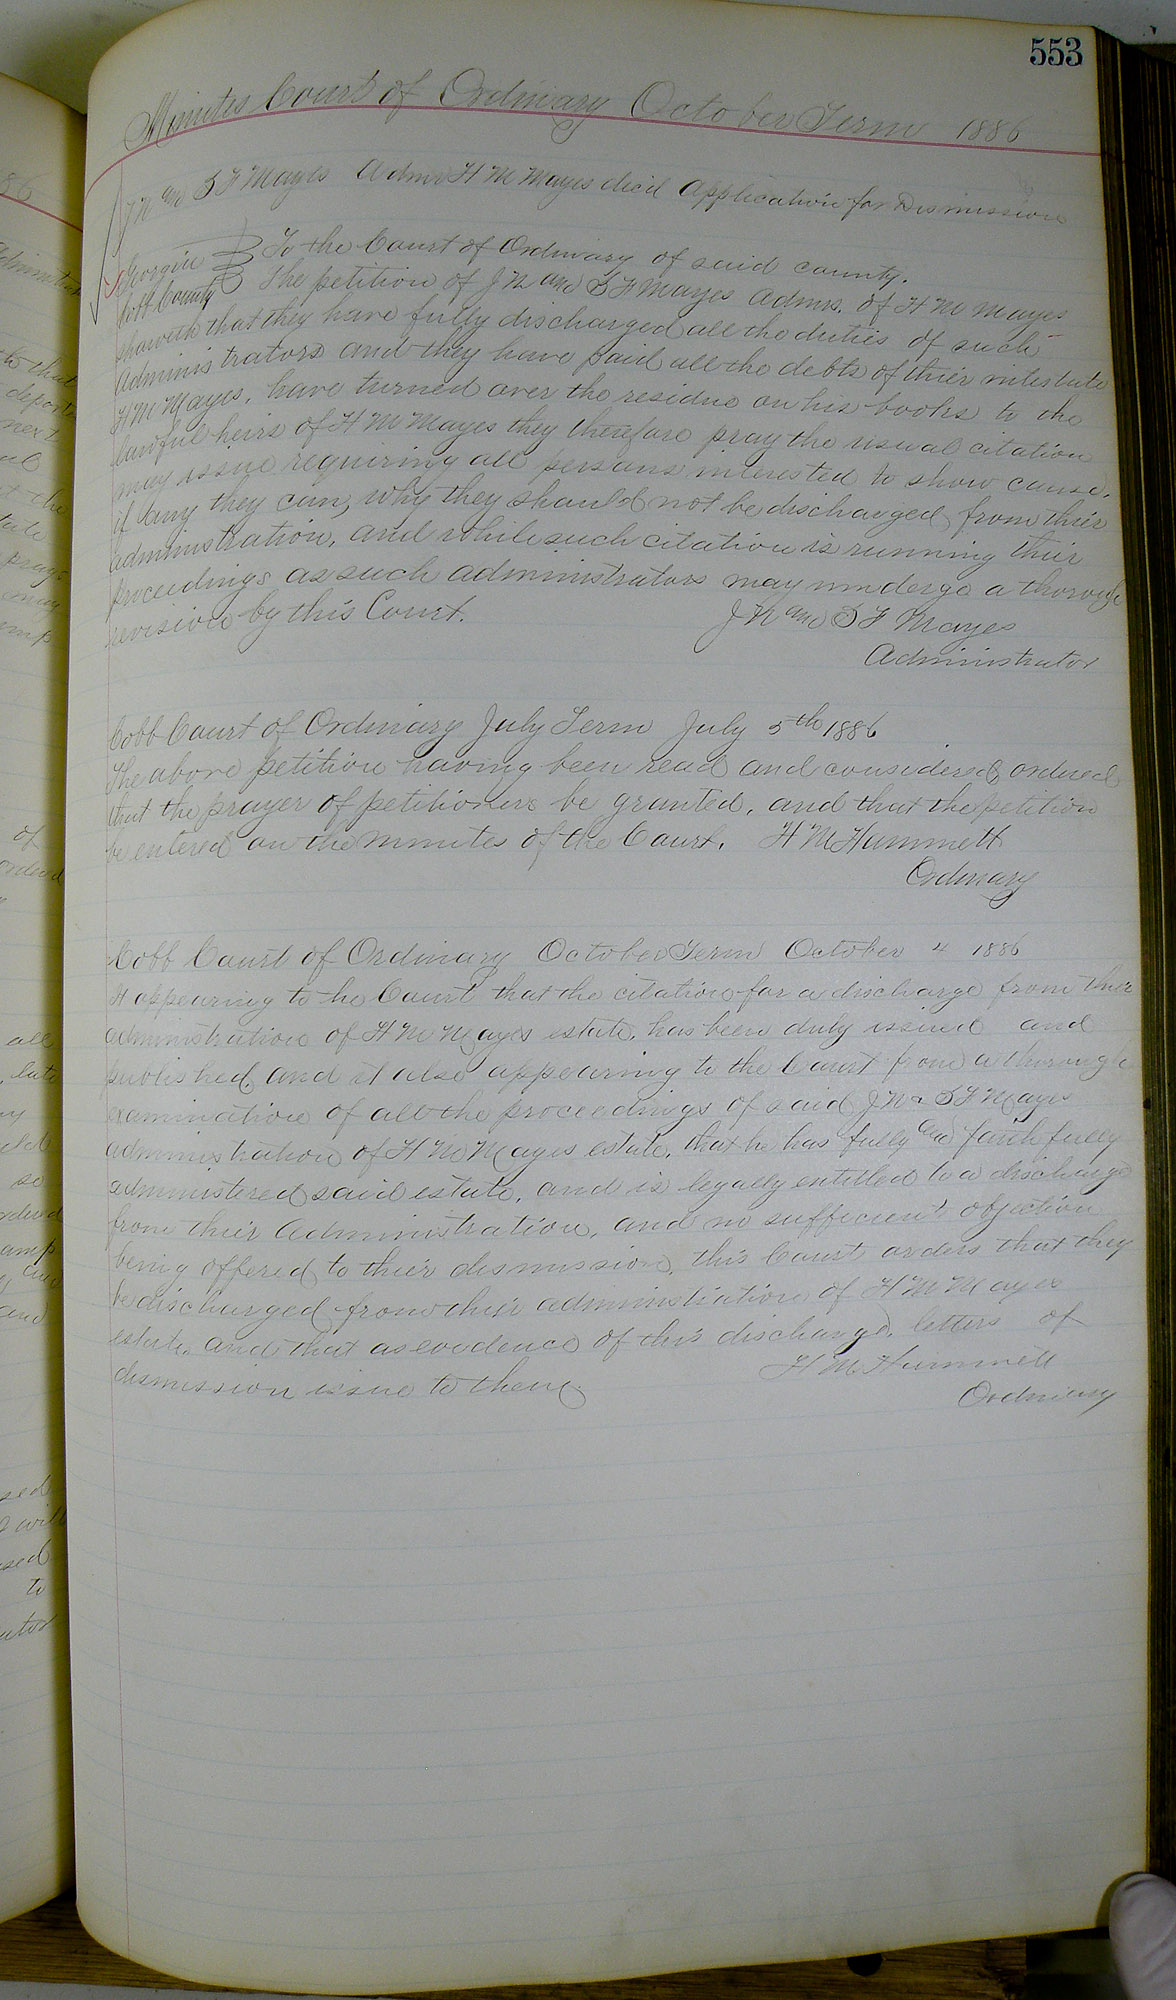 553
Minutes Court of Ordinary October Term 1886
J N and S F Mayes Admr H M Mayes dec'd Application for Dismission
Georgia } To the Court of Ordinary of said county.
Cobb County } The petition of J N and S F Mayes Admrs. of H M Mayes
sheweth that they have fully discharged all the duties of such
Administrators and they have paid all the debts of their intestate
H M Mayes, have turned over the residue on his books to the
lawful heirs of H M Mayes they therefore pray the usual citation
may issue requiring all persons interested to show cause,
if any they can, why they should not be discharged from their
administration, and while such citation is running their
proceedings as such administrators may undergo a thorough
revision by this Court. J N and S F Mayes
Administrator
Cobb Court of Ordinary July Term July 5th 1886
The above petition having been read and considered, ordered
that the prayer of petitioners be granted, and that the petition
be entered on the minutes of the Court. H M Hammett
Ordinary
Cobb Court of Ordinary October Term October 4 1886
It appearing to the Court that the citation for a discharge from their
administration of H M Mayes estate, has been duly issued and
published, and it also appearing to the Court from a thorough
examination of all the proceedings of said J N & S F Mayes
administration of H M Mayes estate, that he has fully and faithfully
administered said estate, and is legally entitled to a discharge
from their administration, and no sufficient objection
being offered to their dismission, this Court orders that they
be discharged from their administration of H M Mayes
estate, and that as evidence of this discharge, letters of
dismission issue to them. H M Hammett
Ordinary